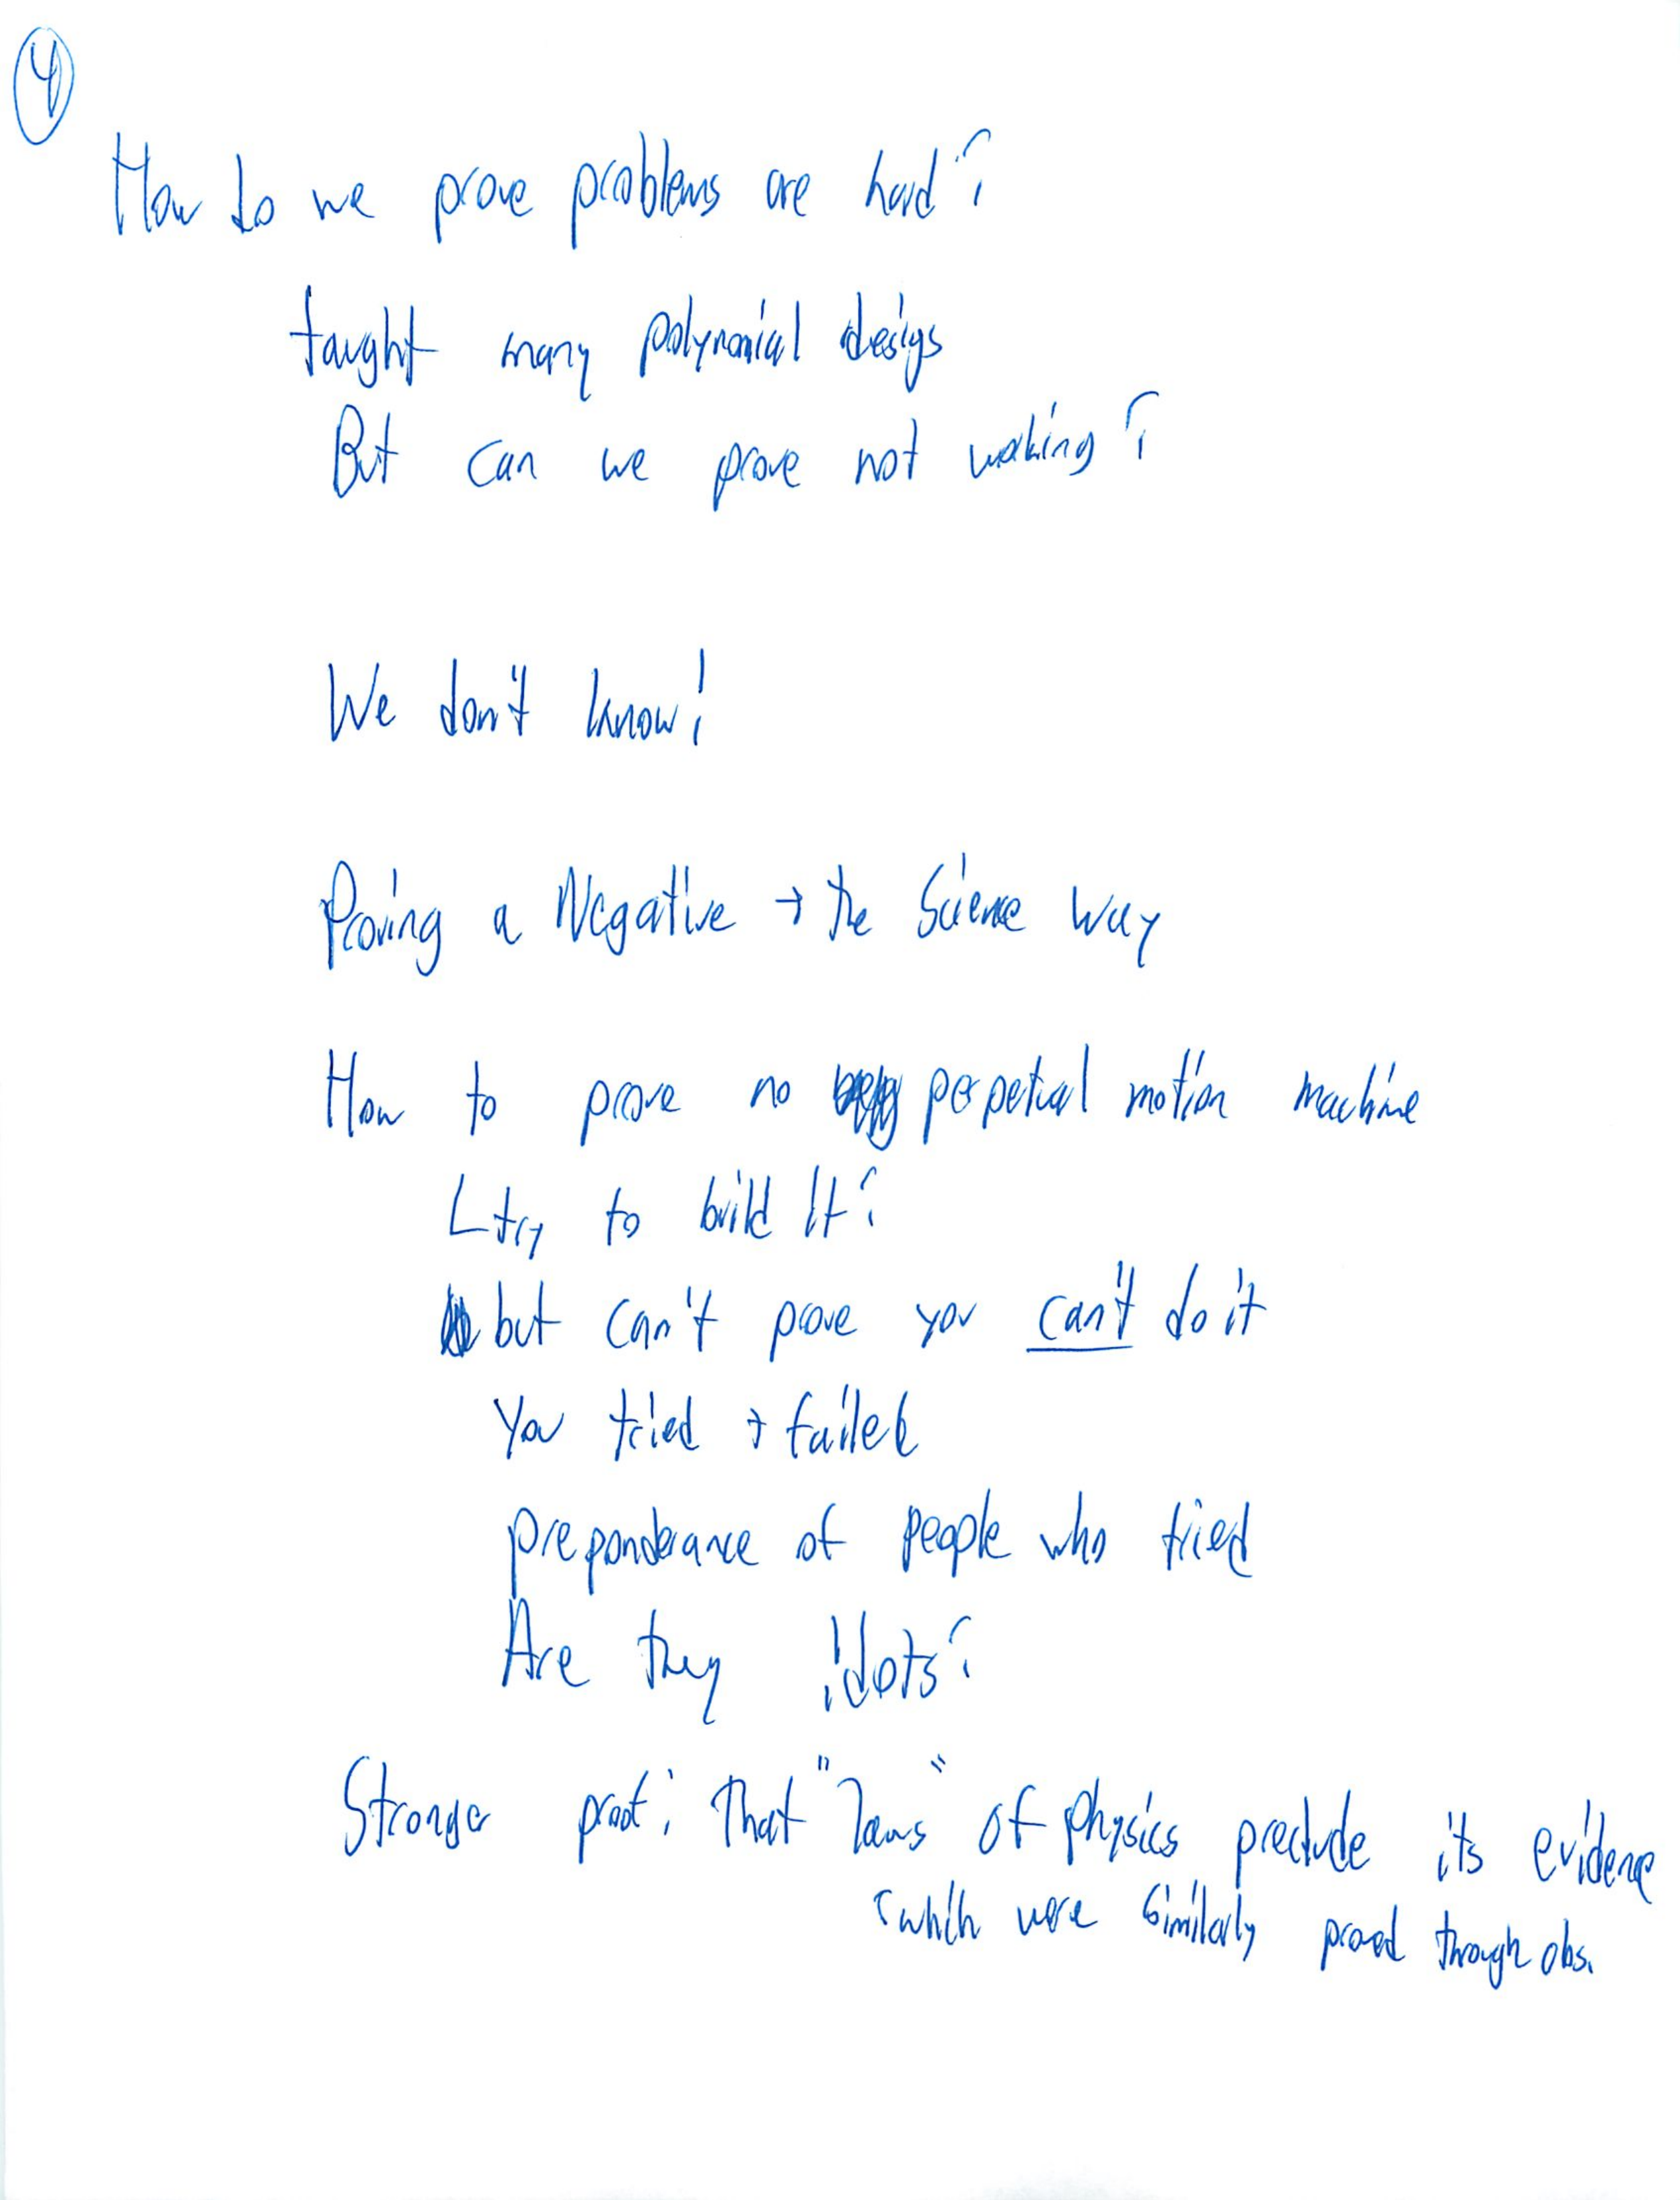 4
How do we prove problems are hard?
taught many polynomial desigs
But can we prove not working?
We don't know!
Proving a Negative → the Science Way
How to prove no perpetual motion machine
L try to build it?
but can't prove you can't do it
You tried + failed
preponderance of people who tried
Are they idots?
Stronger proof: That "laws" of physics preclude its evidence
which were similarly proved through obs.